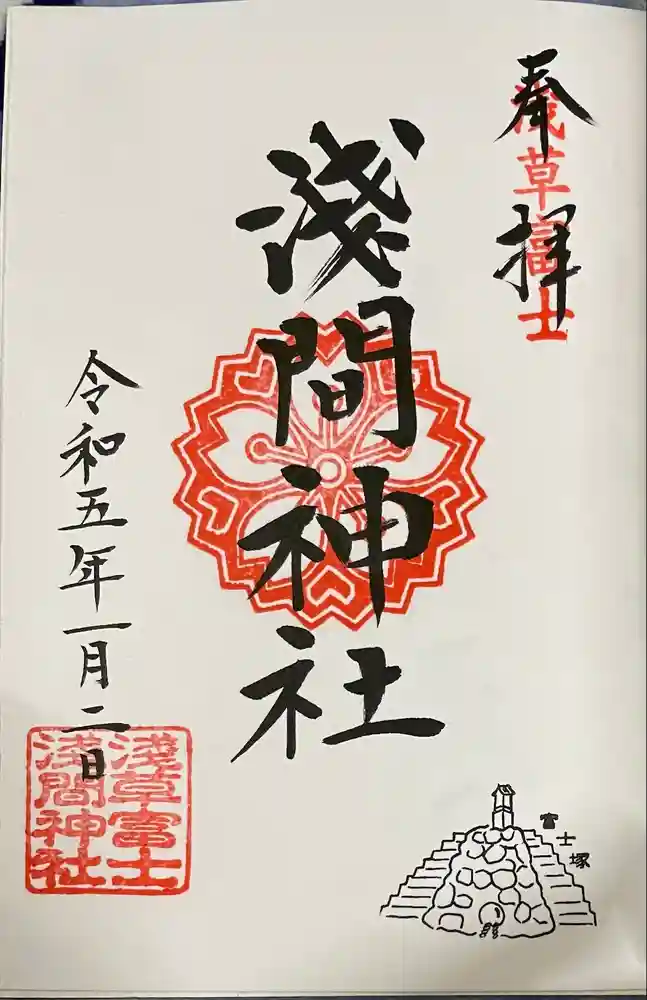 奉拝
淺草富士
淺間神社
令和五年一月二日
淺草富士
淺間神社
富士塚